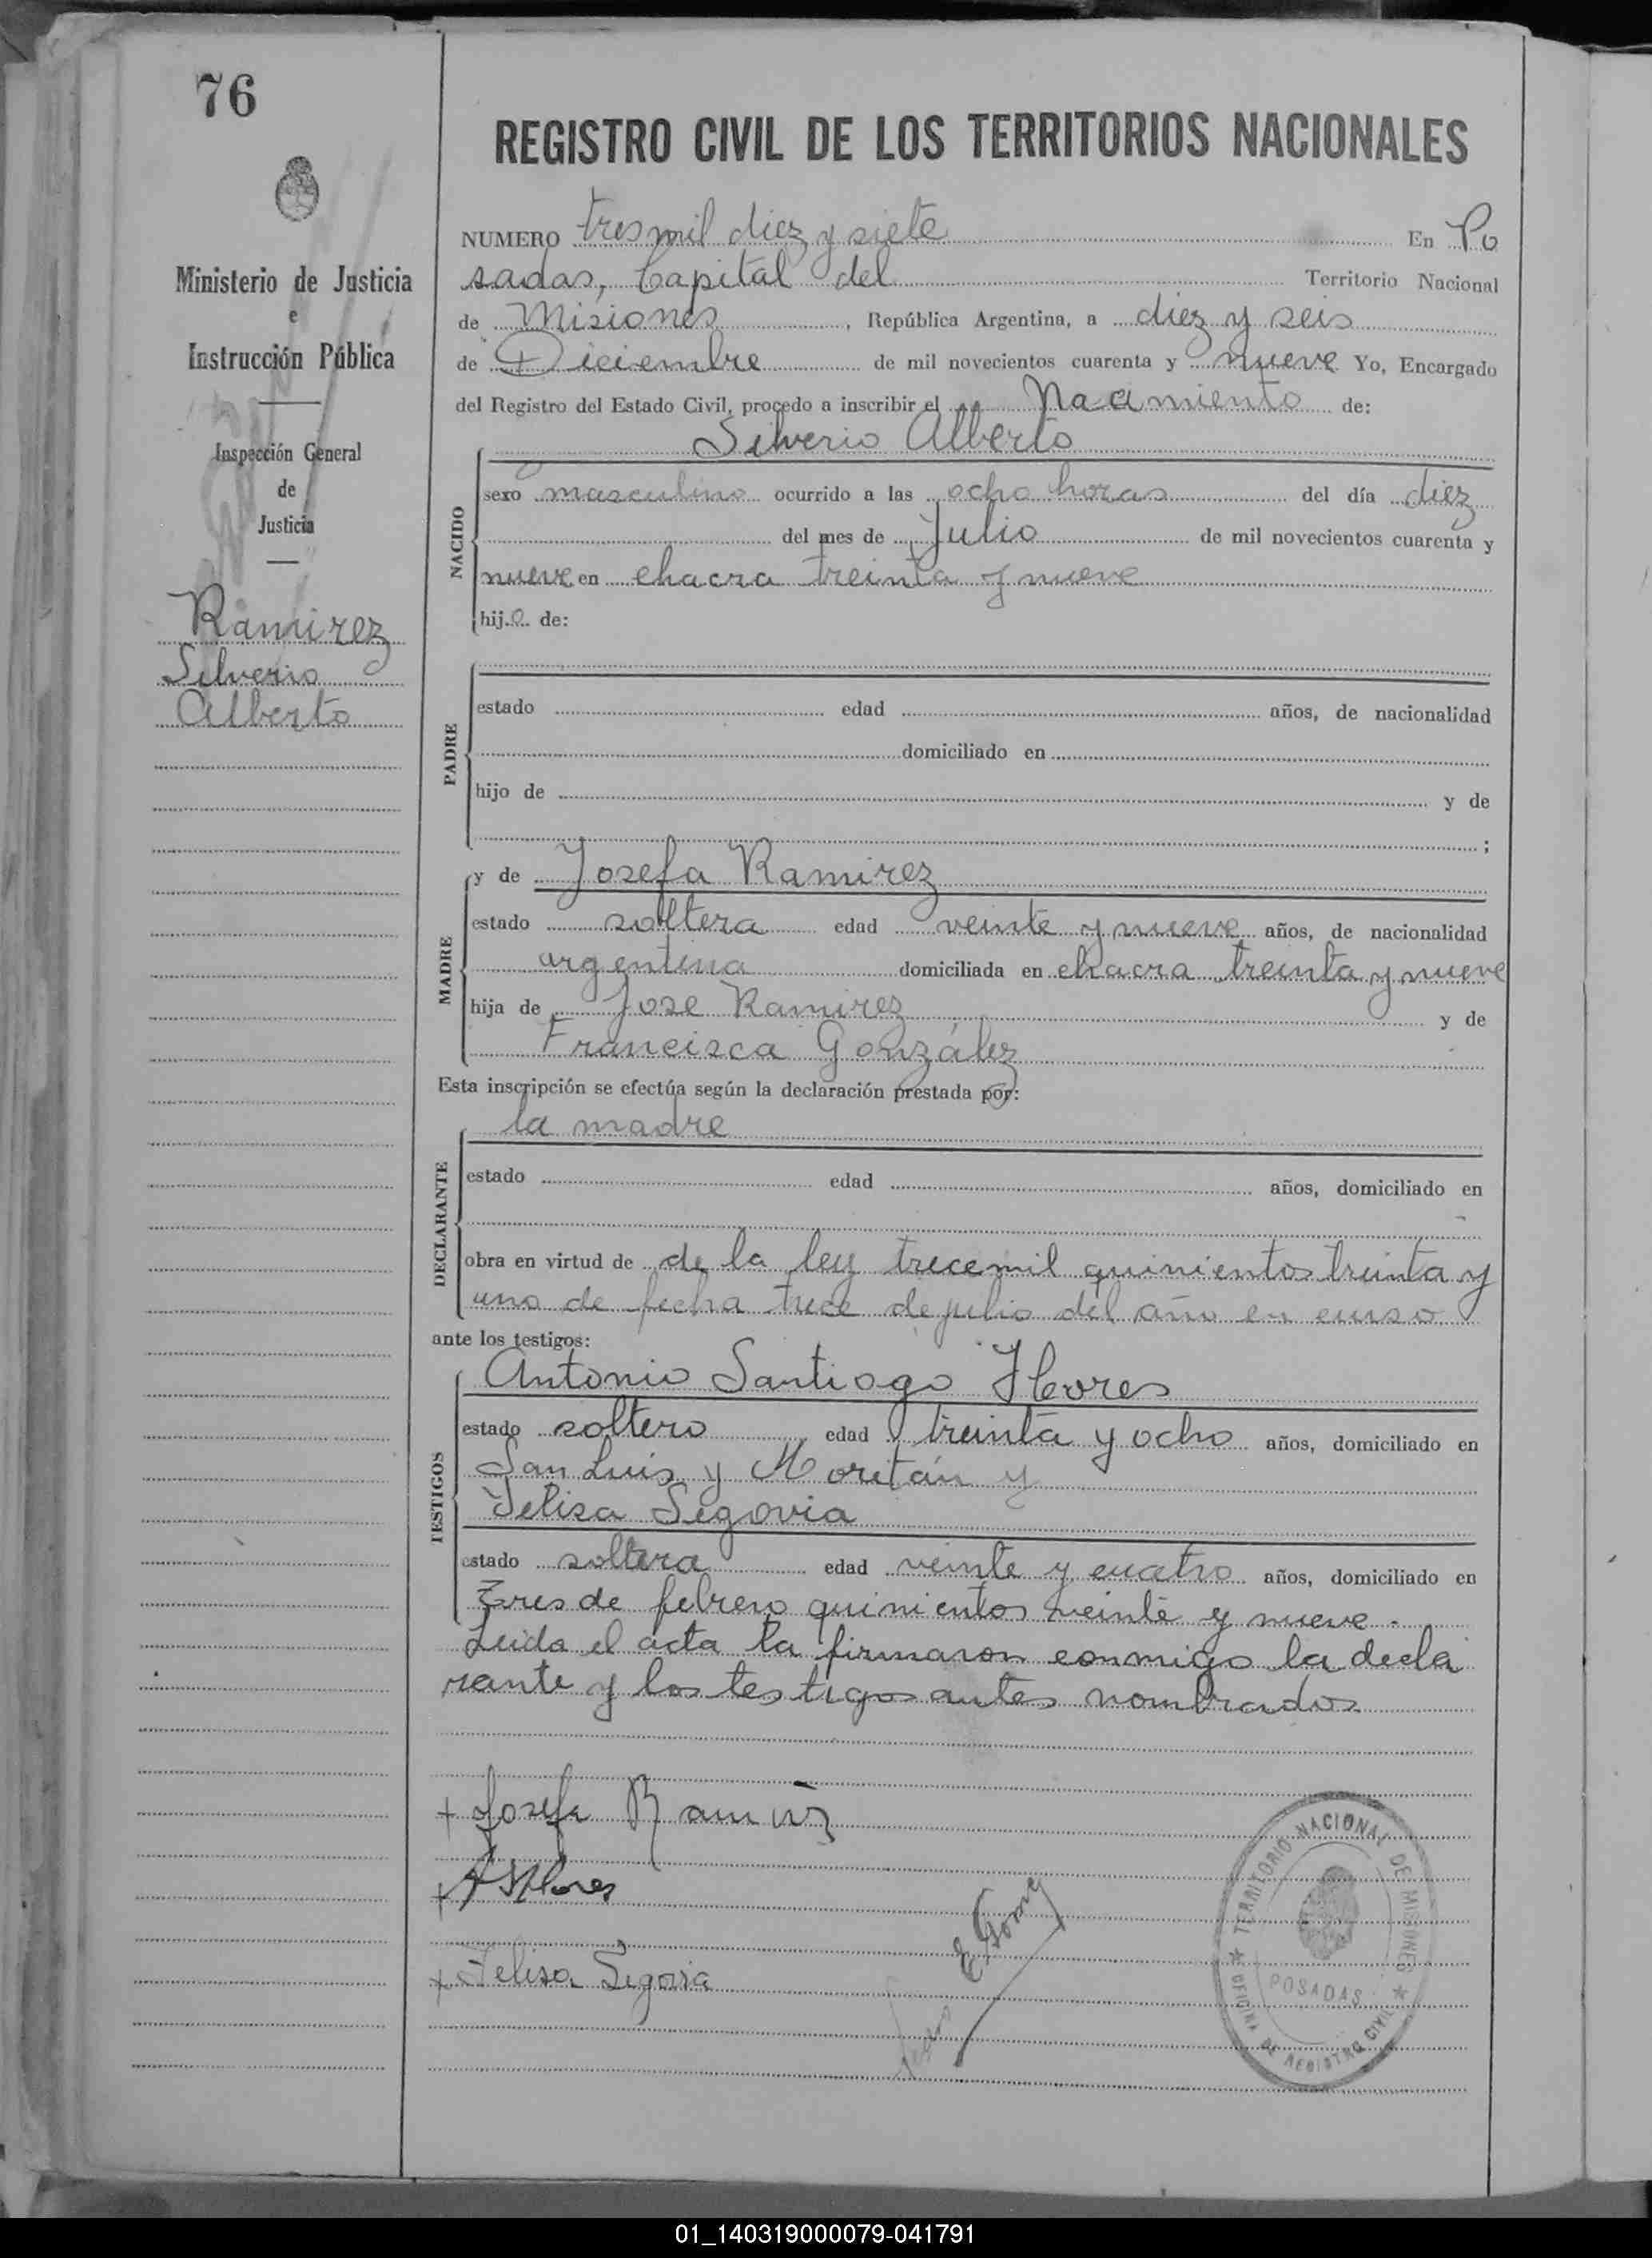 76
Ministerio de Justicia
e
Instrucción Pública
Inspección General
de
Justicia
Ramirez
Silverio
Alberto
REGISTRO CIVIL DE LOS TERRITORIOS NACIONALES
NUMERO tres mil diez y siete En Po
sadas, Capital del Territorio Nacional
de Misiones, República Argentina, a diez y seis
de Diciembre de mil novecientos cuarenta y nueve Yo, Encargado
del Registro del Estado Civil, procedo a inscribir el Nacimiento de:
Silverio Alberto
NACIDO
sexo masculino ocurrido a las ocho horas del día diez
del mes de Julio de mil novecientos cuarenta y
nueve en chacra treinta y nueve
hijo de:
PADRE
estado edad años, de nacionalidad
domiciliado en
hijo de y de
;
MADRE
y de Josefa Ramirez
estado soltera edad veinte y nueve años, de nacionalidad
argentina domiciliada en chacra treinta y nueve
hija de Jose Ramirez y de
Francisca González
Esta inscripción se efectúa según la declaración prestada por:
la madre
DECLARANTE
estado edad años, domiciliado en
obra en virtud de de la ley trece mil quinientos treinta y
uno de fecha trece de julio del año en curso
ante los testigos:
TESTIGOS
Antonio Santiago Flores
estado soltero edad treinta y ocho años, domiciliado en
San Luis y Moritán y
Felisa Segovia
estado soltera edad veinte y cuatro años, domiciliado en
Tres de febrero quinientos veinte y nueve.
Leida el acta la firmaron conmigo la decla
rante y los testigos antes nombrados
+ Josefa Ramirez
+ A S Flores
+ Felisa Segovia
TERRITORIO NACIONAL DE MISIONES
POSADAS
OFICINA DE REGISTRO CIVIL
01_140319000079-041791